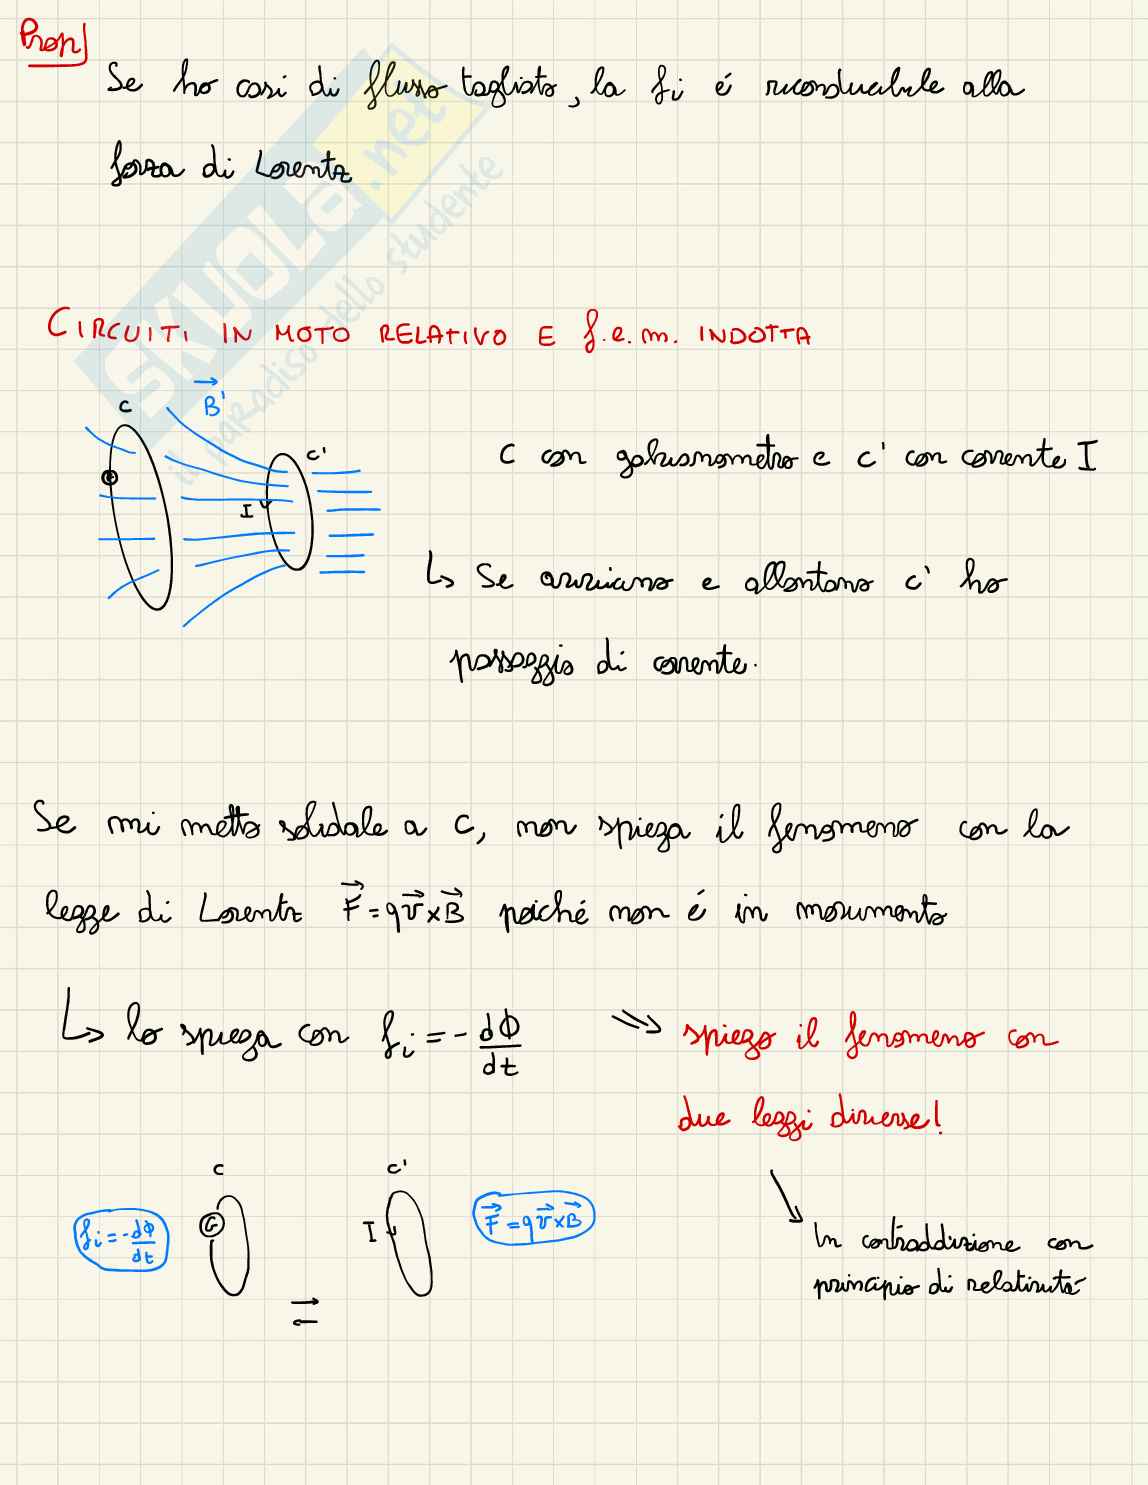 Prop
Se ho casi di flusso tagliato, la fi é riconducibile alla
forza di Lorentz
SKUOLA.net
il paradiso dello studente
CIRCUITI IN MOTO RELATIVO E f.e.m. INDOTTA
B'
C
C'
I
C con galvanometro e C' con corrente I
↳ Se avvicino e allontano C' ho
passaggio di corrente.
Se mi metto solidale a C, non spiega il fenomeno con la
legge di Lorentz F = qv×B poiché non é in movimento
↳ lo spiega con fi = - dΦ/dt ⇒ spiego il fenomeno con
due leggi diverse!
C
C'
fi = - dΦ/dt
G
I
F = qv×B
In contraddizione con
principio di relatività